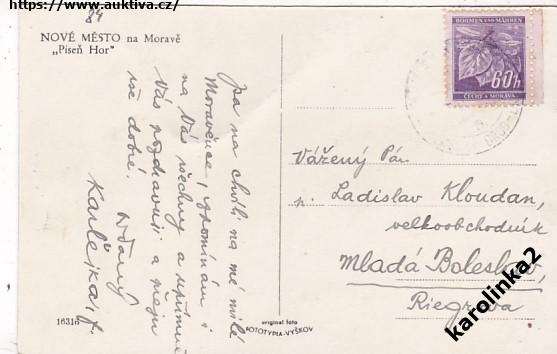 https://www.auktiva.cz/
84
NOVÉ MĚSTO na Moravě
„Píseň Hor"
Jsa na chvíli na mé milé
Moravěnce, vzpomínám i
na Vás všechny a upřímně
Vás pozdravuji a přeji
vše dobré.
Karlička
16316
original foto
FOTOTYPIA-VYŠKOV
BÖHMEN UND MÄHREN
60h
ČECHY A MORAVA
Vážený Pán
p. Ladislav Kloudan,
velkoobchodník
Mladá Boleslav,
Riegrova
karolinka2